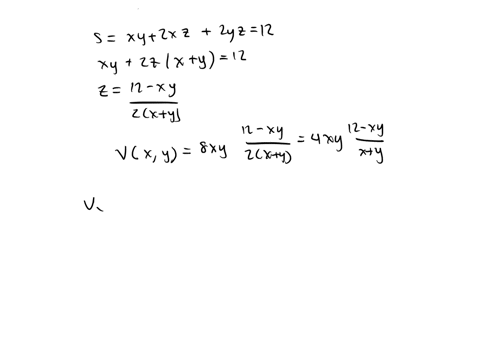 S = xy + 2xz + 2yz = 12
xy + 2z(x+y) = 12
z = \frac{12-xy}{2(x+y)}
V(x,y) = 8xy \frac{12-xy}{2(x+y)} = 4xy \frac{12-xy}{x+y}
V